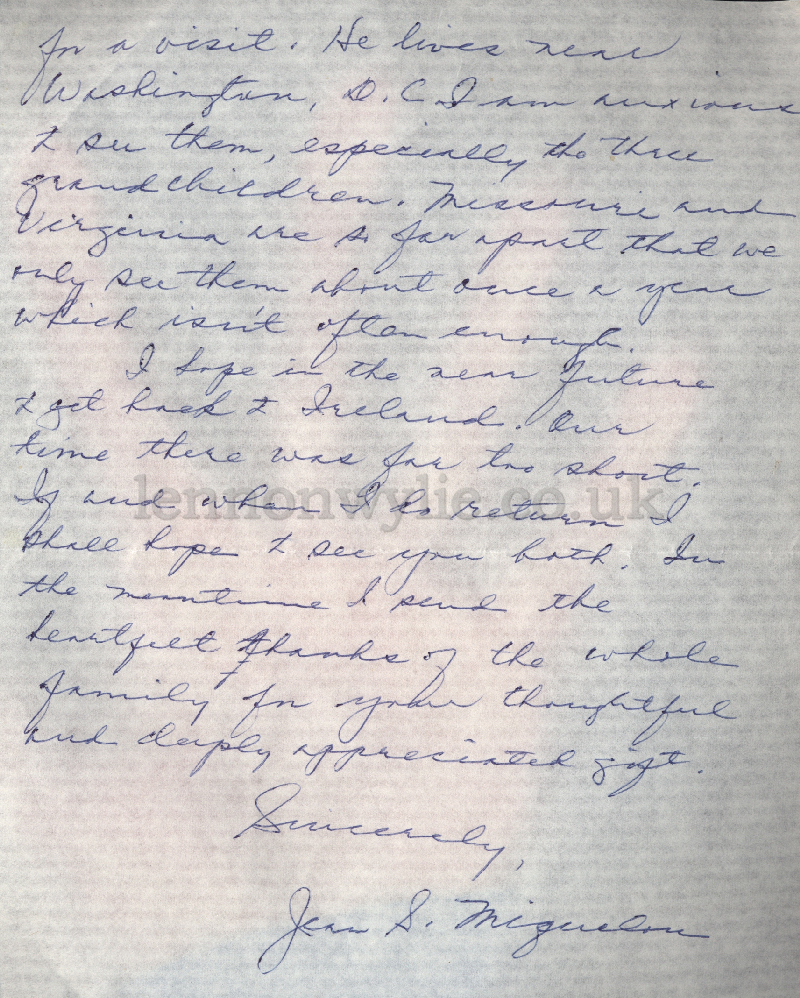 for a visit. He lives near
Washington, D.C. I am anxious
to see them, especially the three
grandchildren. Missouri and
Virginia are so far apart that we
only see them about once a year
which isn't often enough.
I hope in the near future
to get back to Ireland. Our
time there was far too short.
lennonwylie.co.uk
If and when I do return I
shall hope to see you both. In
the meantime I send the
heartfelt thanks of the whole
family for your thoughtful
and deeply appreciated gift.
Sincerely,
Jean S. Miquelon